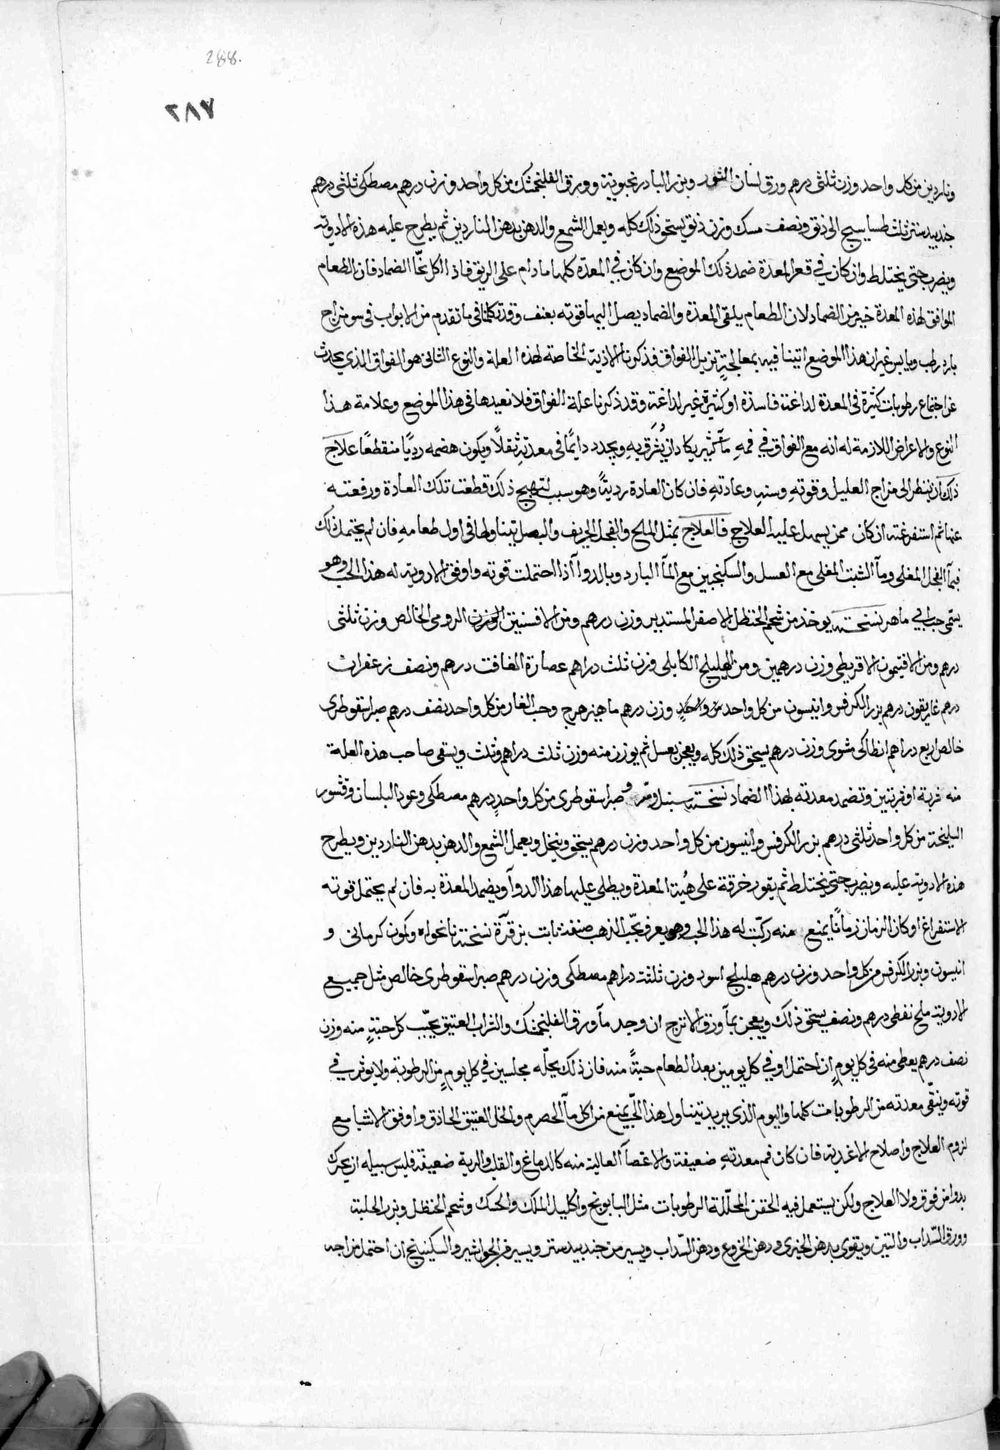 288.
٢٨٧
وناردين من كل واحد وزن ثلثى درهم ورق لسان الثور وبزر البادرنجبوية وورق الفلنجمشك من كل واحد وزن درهم مصطكى ثلثى درهم
جندبيدستر ثلث طساسيج الى دنق ونصف مسك وزن دنق يسحق ذلك كله ويعمل الشمع والدهن بدهن الناردين ثم يطرح عليه هذه الادوية
ويضرب حتى يختلط وان كان في قعر المعدة ضمد ذلك الموضع وان كان في المعدة كلها ما دام على الريق فاذا اكل نحّا الضماد فان الطعام
الموافق لهذه المعدة خير من الضماد لان الطعام يلقى المعدة والضماد يصل اليها قوته بعنف وقد تكلمنا في ما تقدم من الابواب في سو مزاج
بارد رطب ويابس غير ان هذا الموضع اتينا فيه بمعالجةٍ تزيل الفواق فذكرنا الادوية الخاصة لهذه العلة والنوع الثانى هو الفواق الذي يحدث
عن اجتماع رطوبات كثيرة في المعدة لداغة فاسدة او كثيرة غير لداغة وقد ذكرنا علة الفواق فلا نعيدها في هذا الموضع وعلامة هذا
النوع والاعراض اللازمة له انه مع الفواق في فمهِ مآ كثير يكاد ان يُشرَق بهِ ويجد دايمًا في معدتهِ ثقلًا ويكون هضمه رديًا منقطعًا علاج
ذلك ان ينظر الى مزاج العليل وقوتهِ وسنهِ وعادتهِ فان كان العادة رديةً وهو سبب لتهيج ذلك قطعت تلك العادة ورفعته
عنها ثم استفرغته ان كان ممن يسهل عليه العلاج فالعلاج بمثل المالح والفجل الحريف والبصل يتناولها في اول طعامهِ فان لم يحتمل ذلك
فبمآ الفجل المغلى ومآ الشبت المغلى مع العسل والسكنجبين مع المآ البارد وبالدوآ اذا احتملت قوته واوفق الادوية له هذا الحب وهو
يسمى حب ابي ماهر نسخته يوخذ من شحم الحنظل الاصفر المستدير وزن درهم ومن الافسنتين الرومى الخالص وزن ثلثى
درهم ومن الافتيمون الاقريطى وزن درهمين ومن الهليلج الكابلى وزن ثلث دراهم عصارة الغافت درهم ونصف زعفران
درهم غاريقون درهم بزر الكرفس وانيسون من كل واحد وزن درهم ماهيزهرج وحب الغار من كل واحد نصف درهم صبر اسقوطرى
خالص اربع دراهم انطاكى مشوى وزن درهم يسحق ذلك كله ويعجن بعسل ثم يوزن منه وزن ثلث دراهم وثلث ويسقى صاحب هذه العلة
منه شربة او شربتين وتضمد معدته بهذا الضماد نسخته سنبل ومرّ وصبر اسقوطرى من كل واحدٍ درهم مصطكى وعود البلسان وقشور
السليخة من كل واحد ثلثى درهم بزر الكرفس وانيسون من كل واحد وزن درهم يسحق وينخل ويعمل الشمع والدهن بدهن الناردين ويطرح
هذه الادوية عليه ويضرب حتى يختلط ثم يقور خرقة على هيئة المعدة ويطلى عليها هذا الدوآ ويضمد المعدة به فان لم يحتمل قوته
الاستفراغ او كان الزمان زمانًا يمنع منه ركّبت له هذا الحب وهو يعرف بحبّ الذهب صنعة ثابت بن قرّة نسخته نانخواه وكمون كرمانى و
انيسون وبزر الكرفس من كل واحد وزن درهم هليلج اسود وزن ثلثة دراهم مصطكى وزن درهم صبر اسقوطرى خالص مثل جميع
الادوية ملح نفطى درهم ونصف يسحق ذلك ويعجن بمآ ورق الاترج ان وجد مآ ورق الفلنجمشك والشراب العتيق يحبّب كل حبةٍ منه وزن
نصف درهم يعطى منه في كل يومٍ ان احتمل او في كل يومين بعد الطعام حبةً منه فان ذلك يحلّه مجلسين في كل يومٍ من الرطوبة ولا يوثر في
قوته وينقّى معدته من الرطوبات كلها واليوم الذي يريد يتناول هذا الحبّ يمنع من اكل مآ الحصرم والخل العتيق الحاذق واوفق الاشيا مع
لزوم العلاج واصلاح الاغدية فان كان فم معدتهِ ضعيفة والاعضآ العالية منه كالدماغ والقلب والرية ضعيفة فليس سبيله ان يحرك
بدوا من فوق ولا العلاج ولكن يستعمل فيه الحقن المحلّلة الرطوبات مثل البابونج واكليل الملك والحسك وشحم الحنظل وبزر الحلبة
وورق السّداب والتين ويقوى بدهن الخيرى ودهن الخروع ودهن السّداب ويسير من جندبيدستر ويسير من الجواشير والسكبينج ان احتمل مزاجه